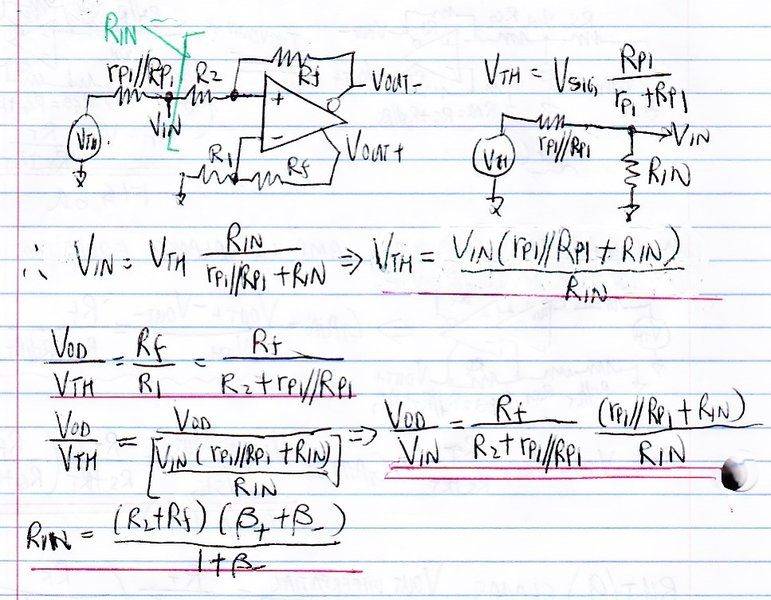 RIN
rp1//Rp1 R2 Rf VOUT-
VTH VIN + -
R1 Rf VOUT+
VTH = VSIG, RP1 / (rp1 + RP1)
rp1//Rp1 VIN
VTH RIN
∴ VIN = VTH RIN / (rp1//Rp1 + RIN) ⇒ VTH = VIN (rp1//Rp1 + RIN) / RIN
VOD / VTH = Rf / R1 = Rf / (R2 + rp1//Rp1)
VOD / VTH = VOD / [VIN (rp1//Rp1 + RIN) / RIN] ⇒ VOD / VIN = Rf / (R2 + rp1//Rp1) (rp1//Rp1 + RIN) / RIN
RIN = (R2+Rf) (β+ + β-) / (1 + β-)